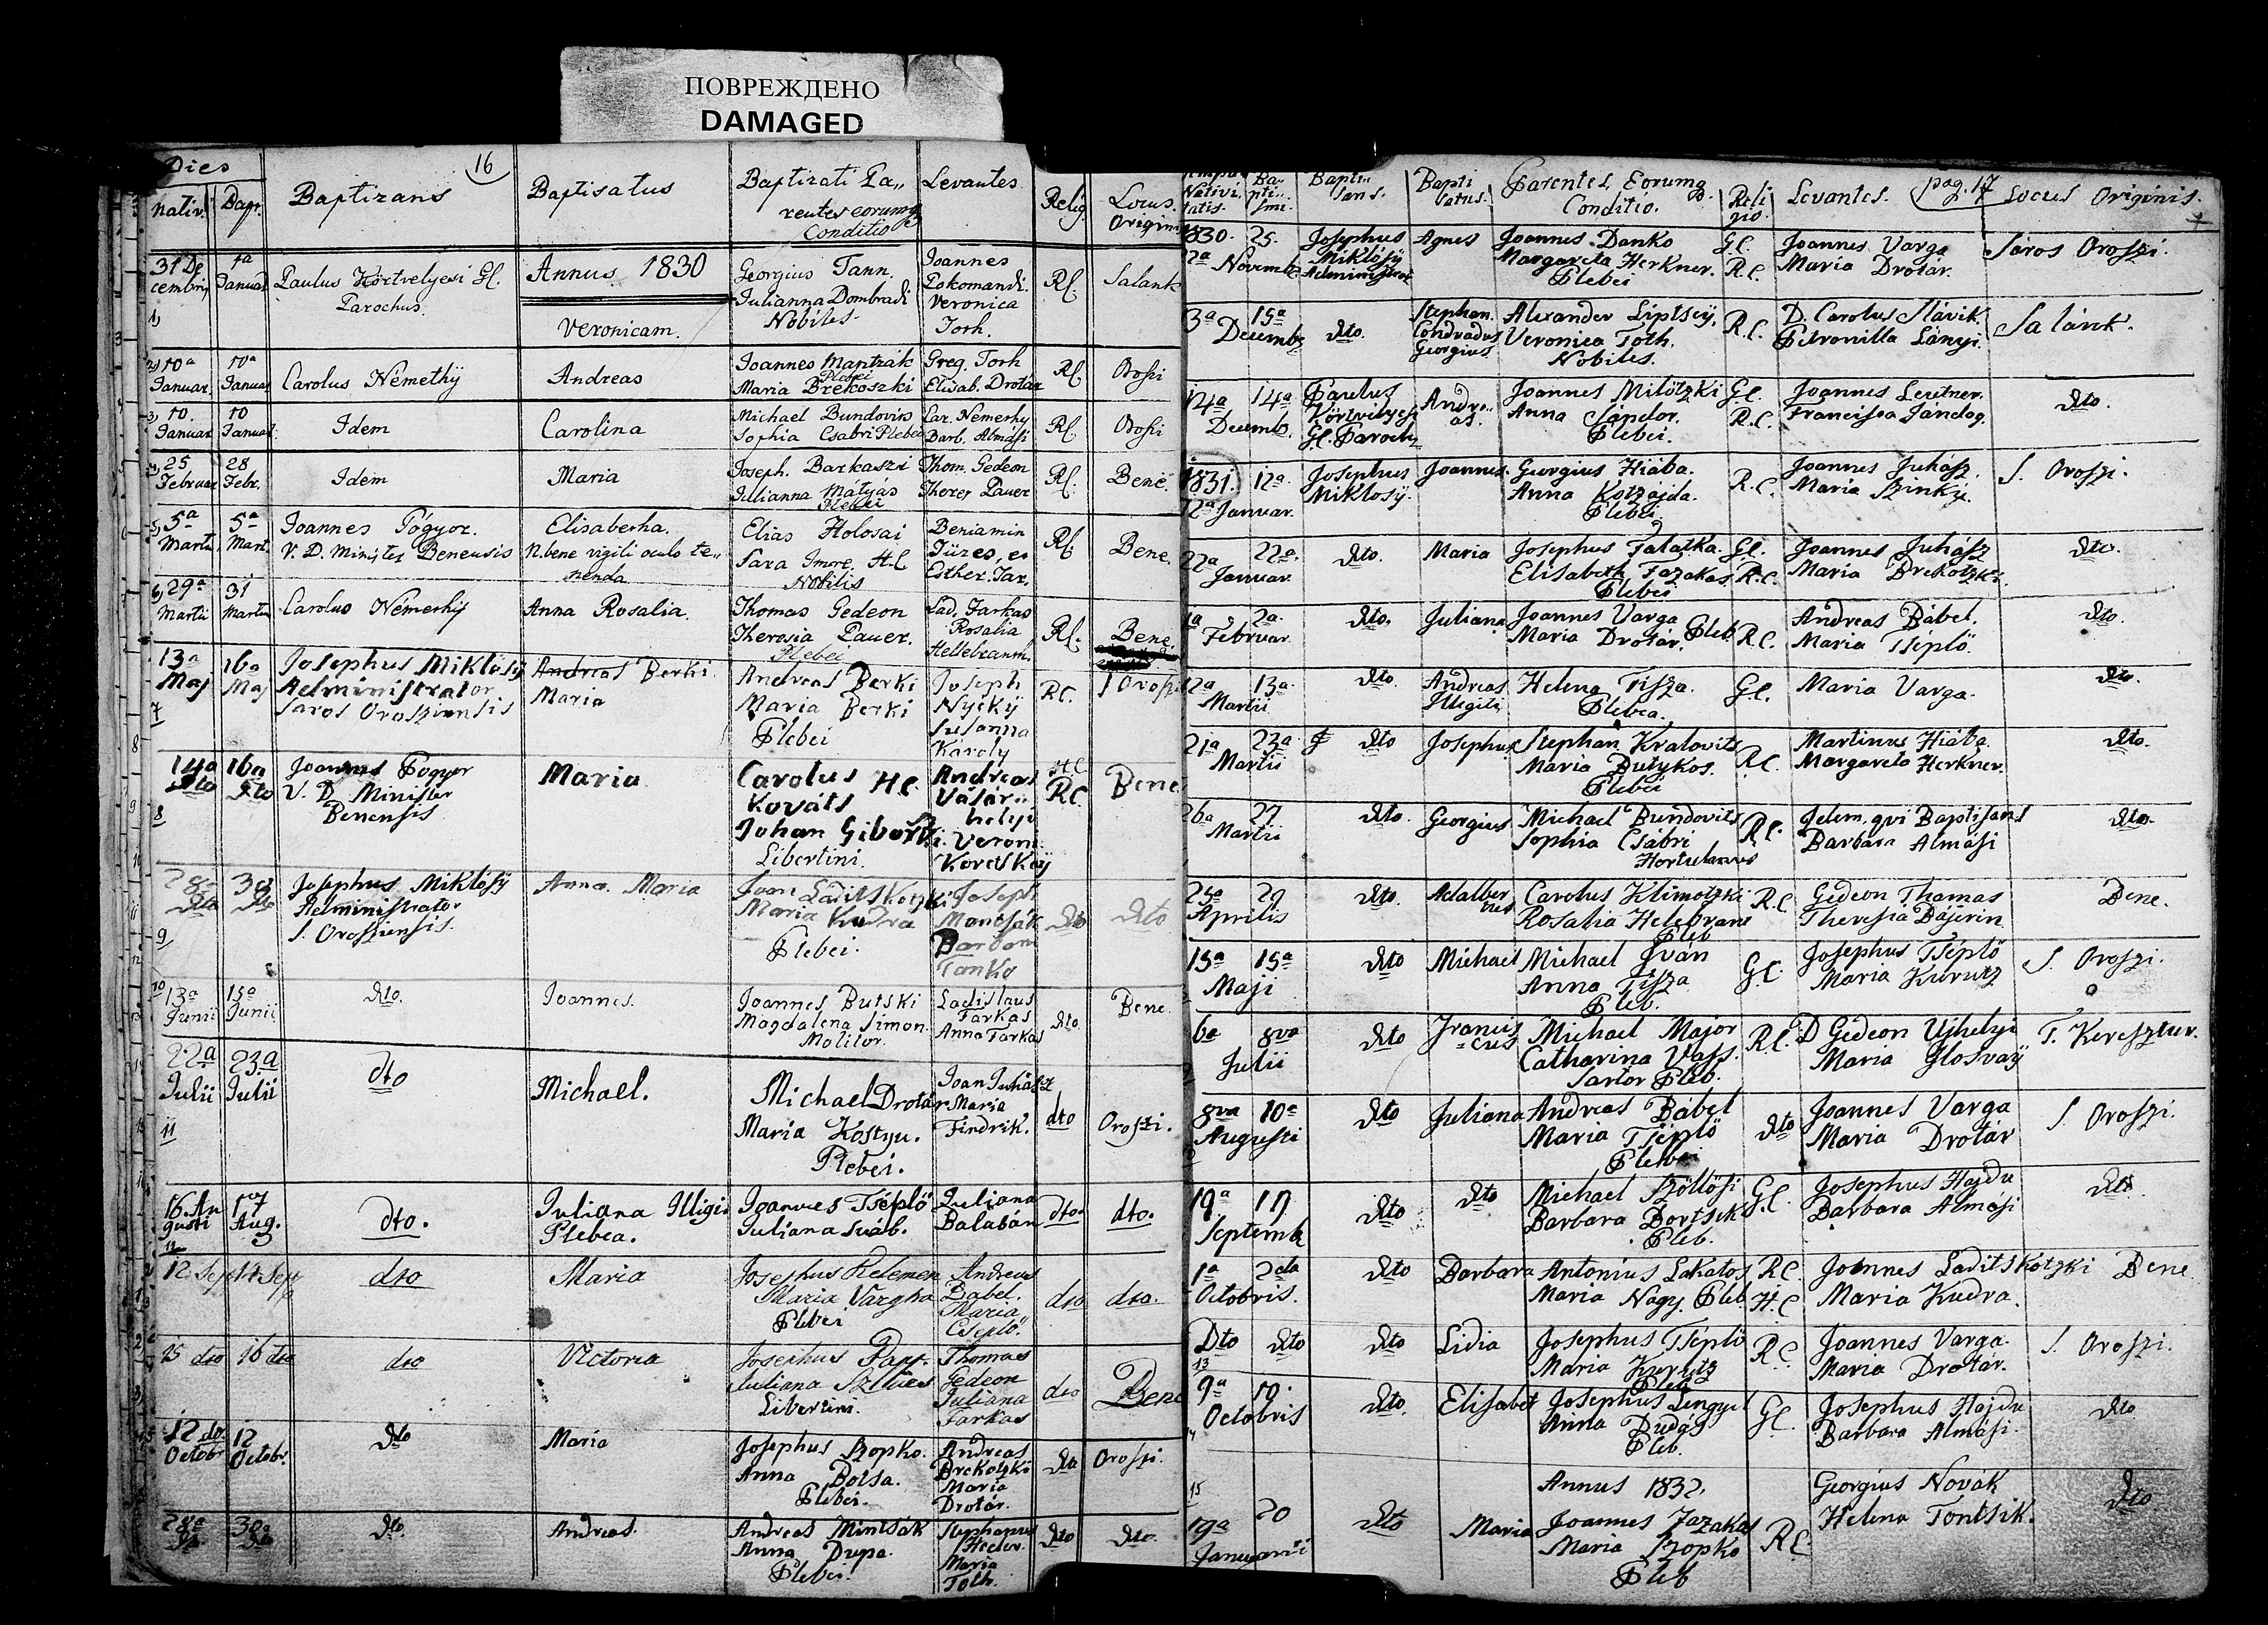 ПОВРЕЖДЕНО
DAMAGED
16
Dies
Nativ. Bapt.
Baptizans
Baptisatus
Baptizati Pa,,
rentes eorumq
Conditio
Levantes
Relig
Locus
Origini
31 De
cembris
1a
Januar
1)
Paulus Körtvelyesi Gl.
Parochus.
Annus 1830
Veronicam.
Georgius Tann.
Julianna Dombradi
Nobiles.
Joannes
Pokomandi.
Veronica
Toth.
Rl.
Salank
2) 10a
Januar.
10a
Januar
Carolus Némethÿ
Andreas
Joannes Mantzák
Plebei
Maria Brekoszki
Greg. Toth
Elisab. Drotár
Rl.
Oroszi
3) 10.
Januar
10
Januar.
Idem
Carolina
Michael Bundovits
Sophia Csabri Plebei
Car. Nemethy
Barb. Almási
Rl.
Oroszi
25
Februar
28
Febr.
Idem
Maria
Joseph. Barkaszi
Julianna Mátyás
Plebei
Thom. Gedeon
Theres Pauer
Rl.
Bene.
5a
Martii
5a
Mart.
Joannes Pógyor.
V. D. Minister Benensis
Elisabetha.
N.bene vigili oculo te,,
nenda
Elias Holosai
Sara Imore. H.C
Nobilis
Beniamin
Füzes, et
Esther. Tar.
Rl
Bene.
6) 29a
Martii
31
Martii
Carolus Némethÿ
Anna Rosalia.
Thomas Gedeon
Theresia Pauer.
Plebei
Lad. Farkas
Rosalia
Hellebranth.
Rl.
Bene.
13a
Maj
7
16a
Maj
Josephus Miklósÿ
Administrator
Saros Orosziensis
Andreas Berki
Maria
Andreas Berki
Maria Berki
Plebei
Joseph
Nyikÿ
Susanna
Károly
R.C.
S Orosz
14a
Dto
8
16a
Dto
Joannes Pogyor
V. D. Minister
Benensis
Maria
Carolus H.C.
Kováts
Johan Giborski
Libertini.
Andreas
Vásár,,
helyi
Veron.
Koretskaÿ
H.C
R.C.
Bene
28a
Dto
9
30
Dto
Josephus Miklósÿ
Administrator
S. Orosziensis.
Anna Maria
Joan Laditskotzki
Maria Kudra
Plebei.
Joseph
Mantsák
Barbara
Tanko
Dto
Dto
10
13a
Junii
15a
Junii
Dto.
Joannes.
Joannes Butski
Magdalena Simon.
Molitor.
Ladislaus
Farkas
Anna Farkas
Dto
Bene
22a
Julii
11
23.a
Julii
dto
Michael.
Michael Drotár
Maria Kostyu.
Plebei.
Joan Juhász
Maria
Findrik.
dto
Oroszi.
16. Au
gusti
17
Aug.
dto.
Juliana Illigi
Plebea.
Joannes Tséplö
Juliana Suáb.
Juliana
Balabán
dto.
dto.
12 Sep
14 Sep
dto
Maria
Josephus Kelemen
Maria Vargha
Plebei
Andreas
Babel.
Maria
Cséplö.
dto
dto.
15 dto
16 dto
dto
Victoria
Josephus Papp.
Juliana Szilves
Libertini.
Thomas
Gedeon
Juliana
Farkas
dto
Bene
12 do.
Octobr
12
Octobr.
Dto
Maria
Josephus Szopko.
Anna Botsa.
Plebei.
Andreas
Brekotzki
Maria
Drotár.
Dto
Oroszi.
28a
Dto
30a
Dto
Dto.
Andreas.
Andreas Mintsák
Anna Dupa.
Plebei.
Stephanus
Heder.
Maria
Toth.
Dto
Dto.
Nativi.
tatis.
Ba..
pti..
smi.
Bapti..
sans.
Bapti
satus.
Parentes, Eorumq
Conditio.
Reli
gio.
Levantes.
pag. 17
Locus Originis.
1830.
22a
25.
Novemb
Josephus
Miklósÿ
Administrator
Agnes
Joannes Danko
Margareta Herkner.
Plebei
G.C.
R.C.
Joannes Varga
Maria Drotár.
Sáros Oroszi.
3a
15a
Decemb
Dto.
Stephan.
Condradus
Georgius
Alexander Liptseÿ,
Veronica Toth.
Nobiles.
R.C.
D. Carolus Slávik
Petronilla Lányi.
Salánk.
14a
14a
Decemb.
Paulus
Körtvélyesi
G.C. Paroch
Andre,,
as.
Joannes Milótzki
Anna Sándor.
Plebei.
G.C.
R.C.
Joannes Leutner.
Francisca Sándog.
Dto.
1831.
12a Januar.
12a.
Josephus
Miklosÿ.
Joannes
Georgius Hiába.
Anna Kotzájda.
Plebei
R.C.
Joannes Juhász.
Maria Szinky.
S. Oroszi.
22a
22a.
Januar.
Dto.
Maria
Josephus Falatka.
Elisabeth Fazakas
Plebei
G.C.
R.C.
Joannes Juhász
Maria Brekotzki.
Dto.
1a
2a.
Februar.
Dto.
Juliana
Joannes Varga
Maria Drotár. Pleb.
R.C.
Andreas Bábel.
Maria Tséplö.
Dto.
12a
13a.
Martii
Dto.
Andreas
Illigiti
Helena Tisza.
Plebea.
G.C.
Maria Varga.
Dto.
21a
23a
Martii
Dto
Josephus
Stephan Kralovits
Maria Butykos.
Plebei
R.C.
Martinus Hiába
Margareta Herkner.
Dto.
26a
27
Martii
Dto.
Georgius
Michael Bundovits
Sophia Csábri
Hortulanus
R.C.
Idem, qvi Baptisans
Barbara Almási
Dto.
25a
29
Aprilis
Dto.
Adalber
tus
Carolus Klimotzki
Rosalia Helebrant
Pleb
R.C
Gedeon Thomas
Theresia Bajerin
Bene.
15a
15a
Maji
Dto
Michael
Michael Iván
Anna Tisza
Pleb.
G.C.
Josephus Tséplö
Maria Kurutz
S. Oroszi.
6a
8va
Julii
Dto
Francis
cus
Michael Major
Catharina Vass.
Sartor Pleb.
R.C.
D Gedeon Ujhelyi
Maria Ilosvaÿ
T. Keresztur.
8va
10a
Augusti
Dto
Juliana
Andreas Bábel
Maria Tséplö
Plebei
Dto
Joannes Varga
Maria Drotár
S. Oroszi.
19a
19
Septemb
Dto
Dto
Michael Szöllösi
Barbara Bortsik
Pleb.
G.C.
Josephus Hajdu
Barbara Almási
Dto.
1a
2da
Octobris.
Dto
Barbara
Antonius Lakatos
Maria Nagy. Pleb
R.C.
H.C
Joannes Laditskótzki
Maria Kudra.
Bene
Dto
Dto
Dto
Lidia
Josephus Tséplö
Maria Kurutz
Pleb
R.C.
Joannes Varga
Maria Drotár.
S. Oroszi.
13
9a
10.
Octobris
Dto.
Elisabet
Josephus Lengyel
Anna Dudás
Pleb.
G.C.
Josephus Hajdu
Barbara Almási.
Dto
15
19a
20
Januarii
Dto
Maria
Annus 1832.
Joannes Fazakas
Maria Szopko
Pleb
R.C.
Georgius Novák
Helena Tontsik.
Dto.